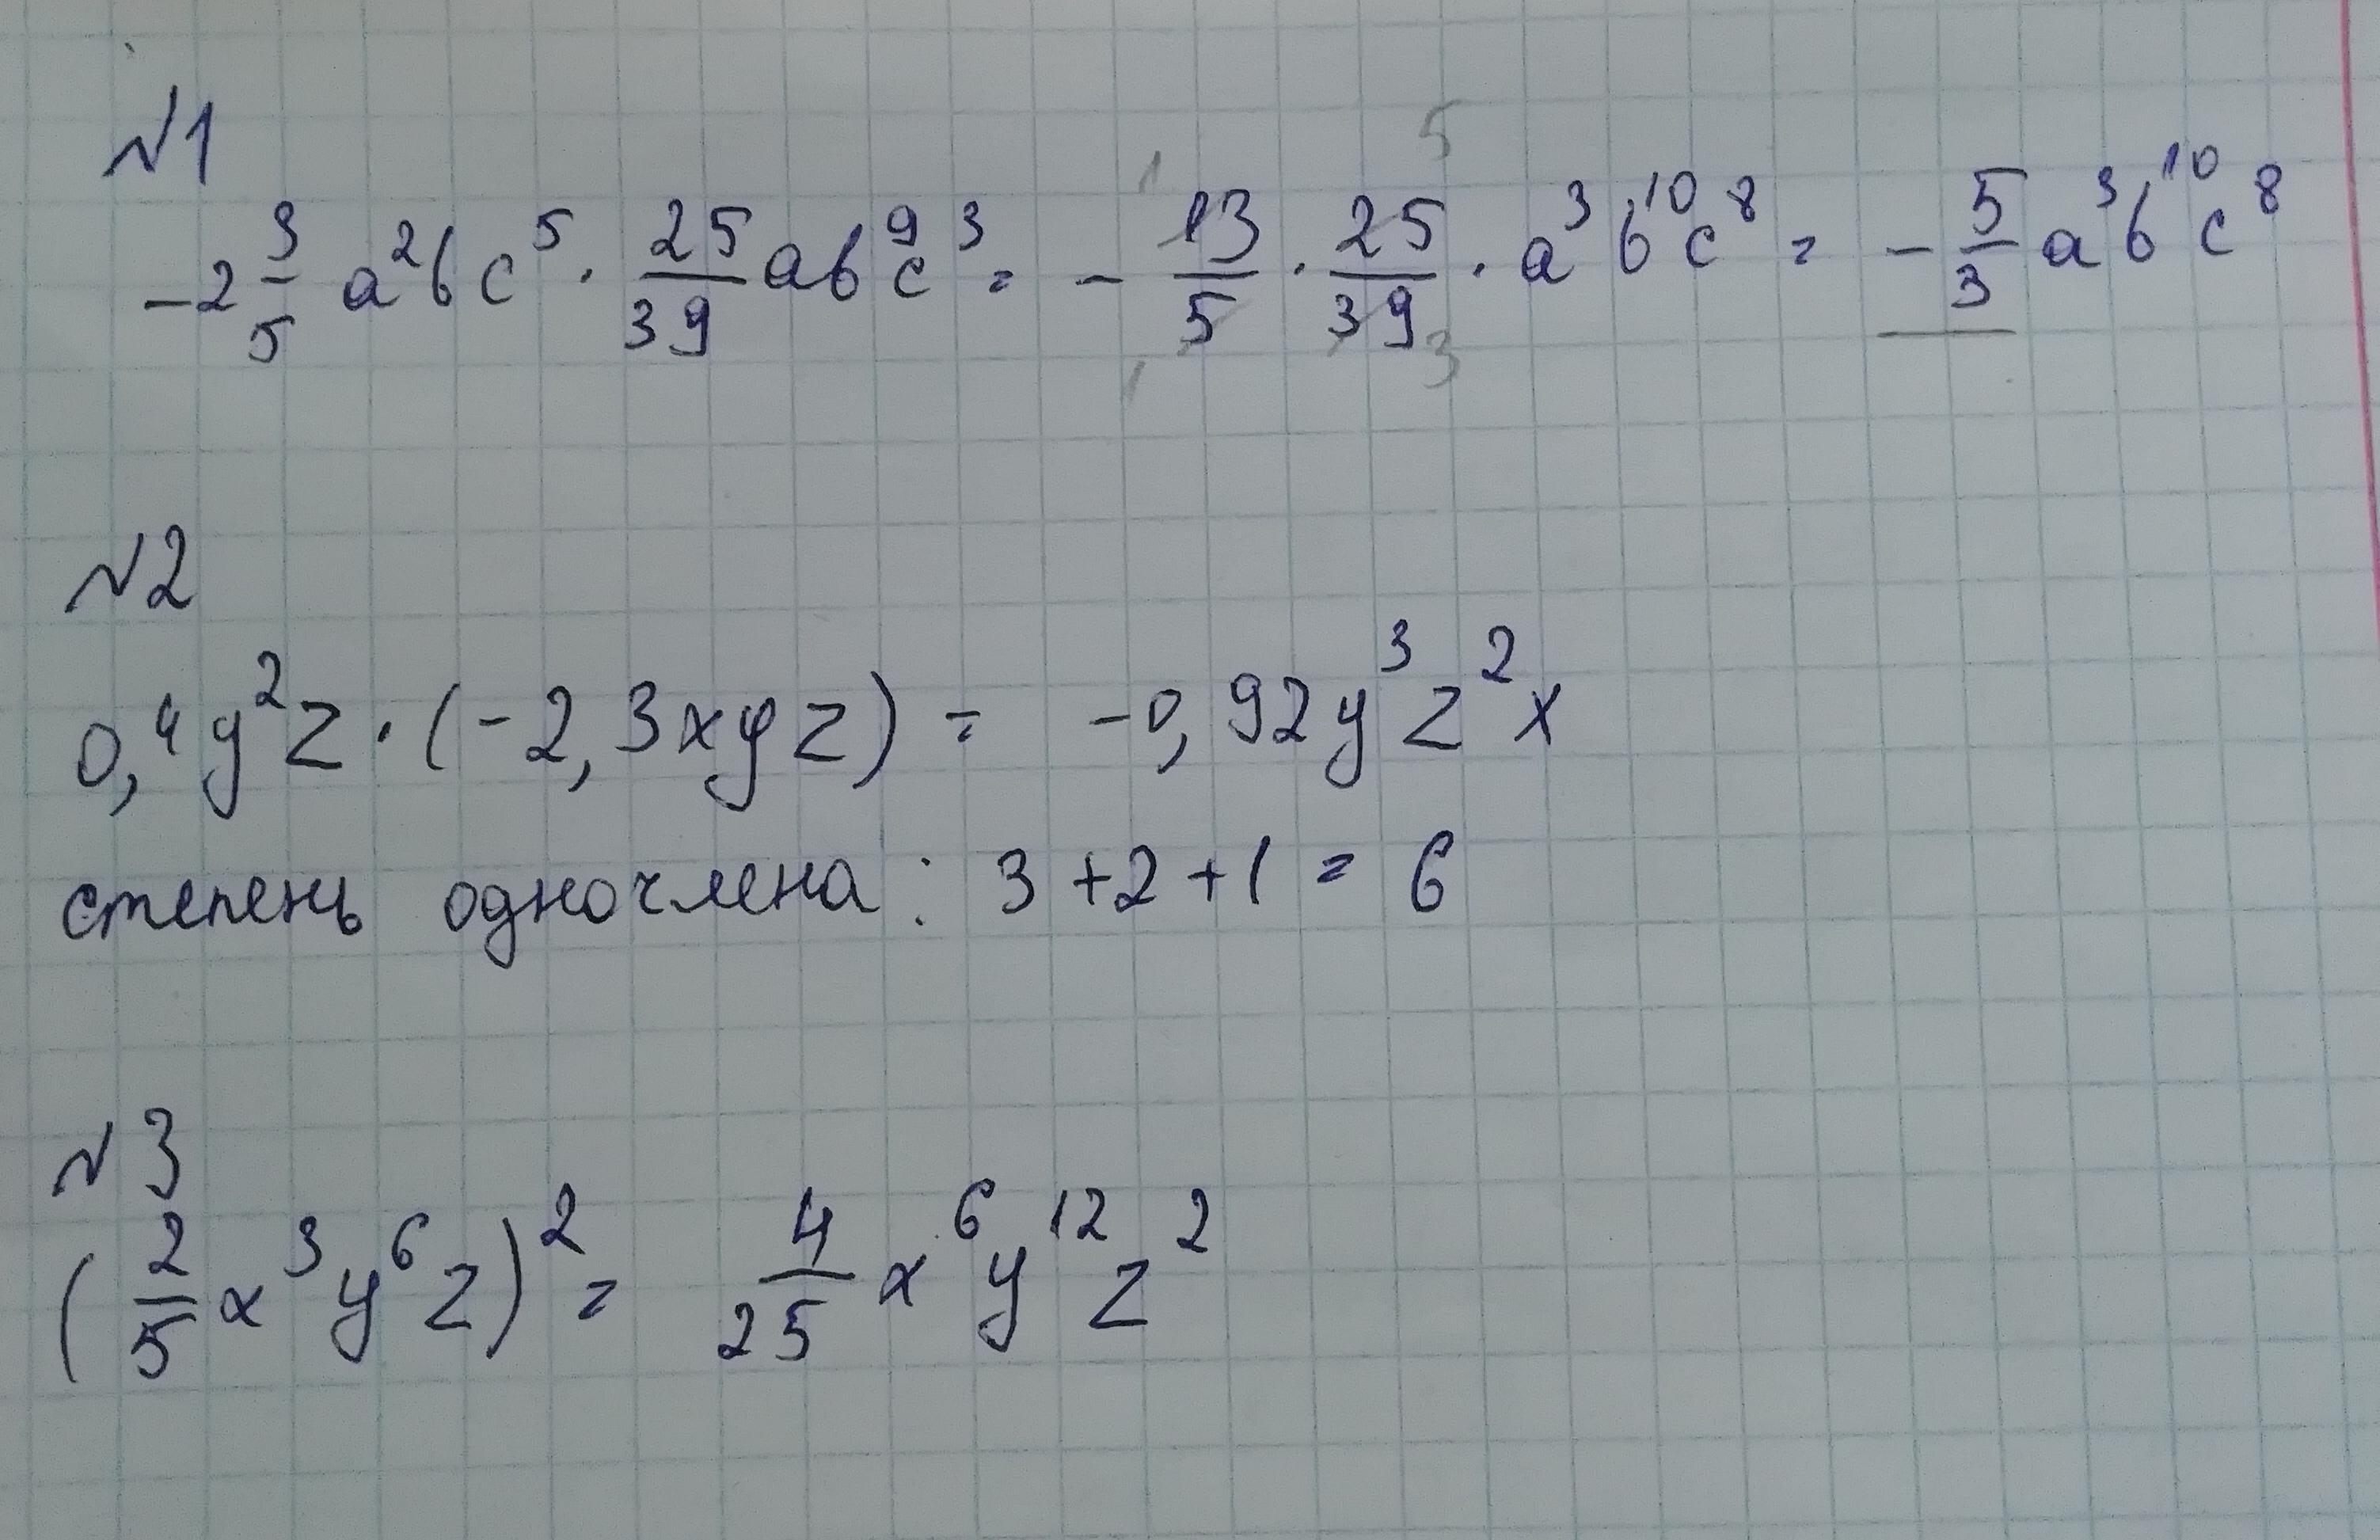 №1
-2 3/5 a²bc⁵ · 25/39 ab⁹c³ = - 13/5 · 25/39 · a³b¹⁰c⁸ = - 5/3 a³b¹⁰c⁸
№2
0,4y²z · (-2,3xyz) = -0,92y³z²x
степень одночлена: 3+2+1 = 6
№3
(2/5 x³y⁶z)² = 4/25 x⁶y¹²z²